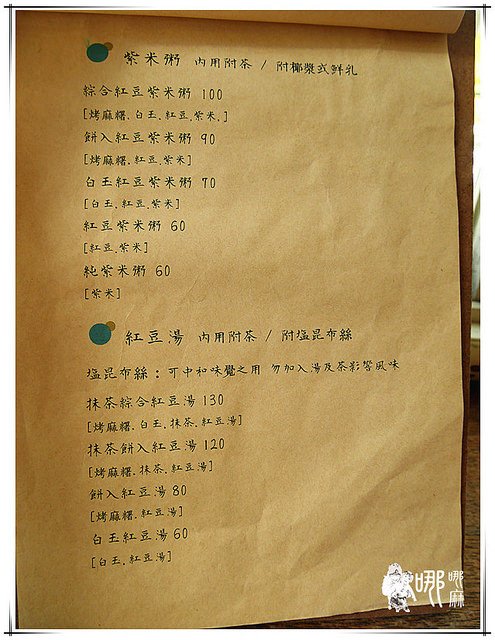 紫米粥 內用附茶 / 附椰漿或鮮乳
綜合紅豆紫米粥 100
[烤麻糬.白玉.紅豆.紫米.]
餅入紅豆紫米粥 90
[烤麻糬.紅豆.紫米]
白玉紅豆紫米粥 70
[白玉.紅豆.紫米]
紅豆紫米粥 60
[紅豆.紫米]
純紫米粥 60
[紫米]
紅豆湯 內用附茶 / 附塩昆布絲
塩昆布絲：可中和味覺之用 勿加入湯及茶影響風味
抹茶綜合紅豆湯 130
[烤麻糬.白玉.抹茶.紅豆湯]
抹茶餅入紅豆湯 120
[烤麻糬.抹茶.紅豆湯]
餅入紅豆湯 80
[烤麻糬.紅豆湯]
白玉紅豆湯 60
[白玉.紅豆湯]
哪哪麻